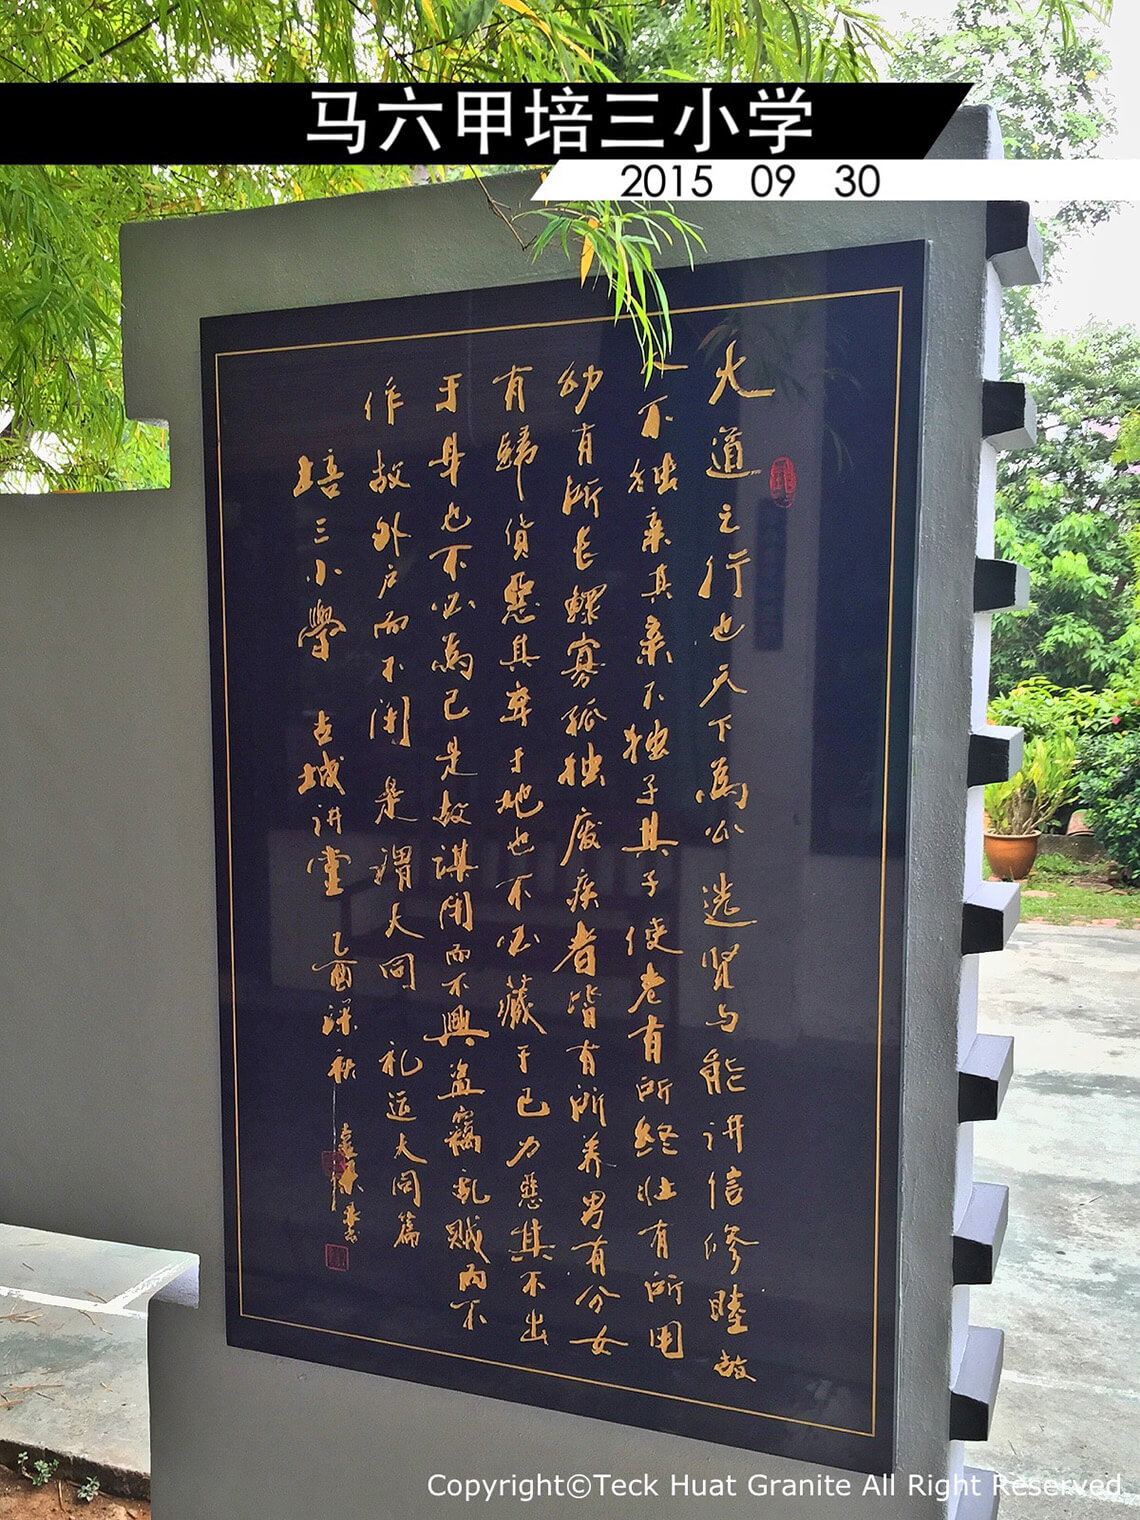 马六甲培三小学
2015 09 30
大道之行也天下為公选贤与能讲信修睦故
人不独亲其亲不独子其子使老有所终壮有所用
幼有所长鳏寡孤独废疾者皆有所养男有分女
有歸貨惡其棄于地也不必藏于己力惡其不出
于身也不必為己是故谋闭而不興盗竊乱贼而不
作故外户而不闭是謂大同 礼运大同篇
培三小學 古城讲堂 乙酉深秋
Copyright©Teck Huat Granite All Right Reserved.